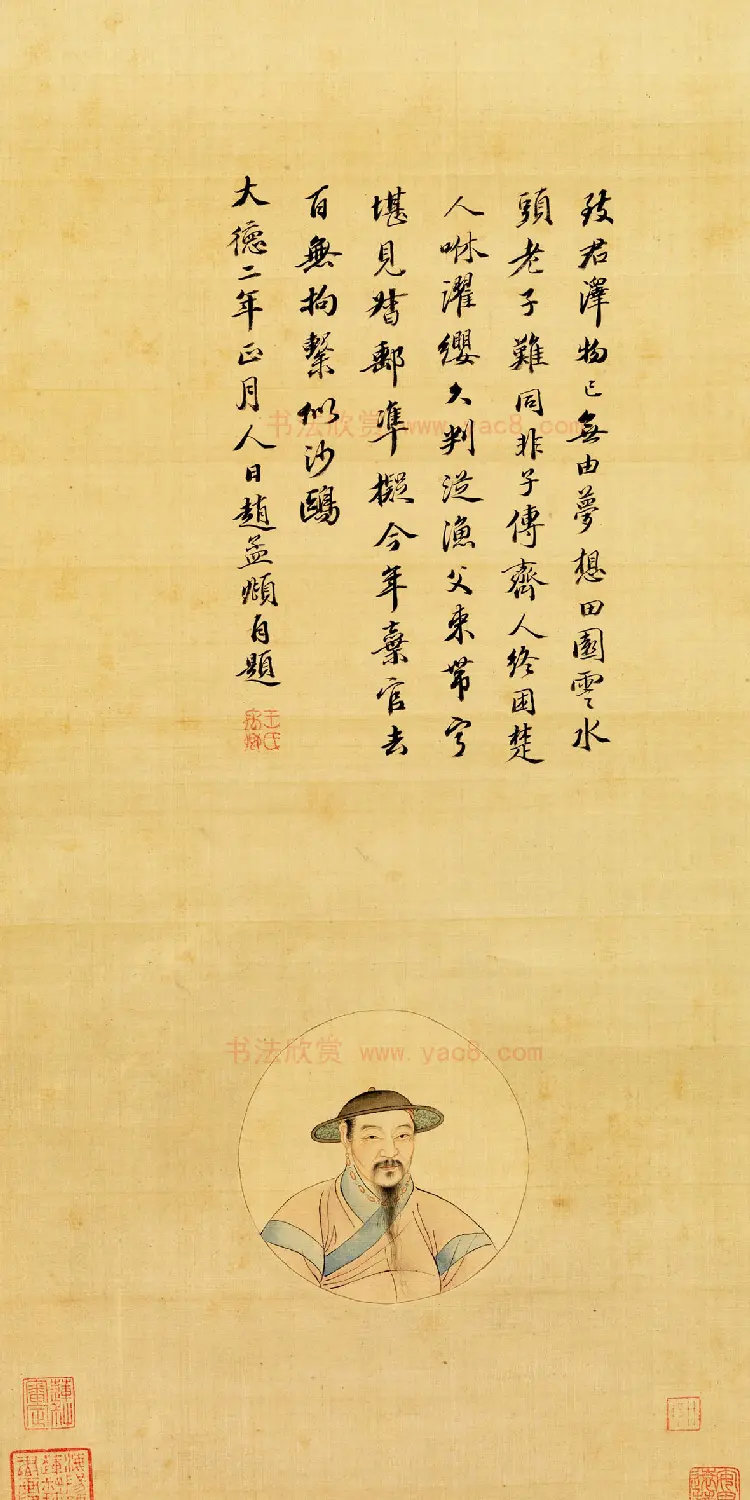 致君澤物已無由夢想田園雲水
頭老子難同非子傳齊人終困楚
人咻濯纓久判從漁父束帶寧
堪見督郵準擬今年棄官去
百無拘繫似沙鷗
大德二年正月人日趙孟頫自題
书法欣赏 www.yac8.com
书法欣赏 www.yac8.com